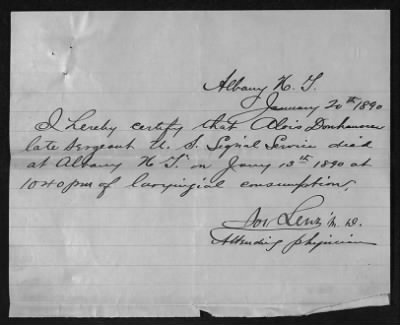 Albany N. Y.
January 20th 1890
I hereby certify that Alois Donhauser
late Sergeant U. S. Signal Service died
at Albany N Y. on Jany 13th 1890 at
10 40 pm of laryngial consumption,
Jos Lenz M. D.
Attending physician